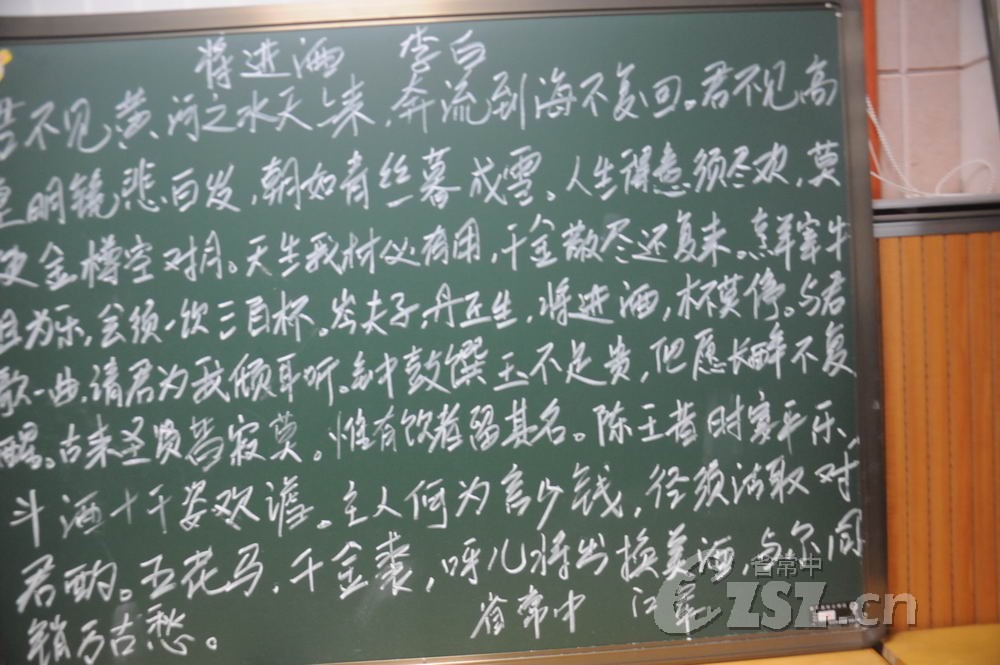 将进酒 李白
君不见黄河之水天上来，奔流到海不复回。君不见高
堂明镜悲白发，朝如青丝暮成雪。人生得意须尽欢，莫
使金樽空对月。天生我材必有用，千金散尽还复来。烹羊宰牛
且为乐，会须一饮三百杯。岑夫子，丹丘生，将进酒，杯莫停。与君
歌一曲，请君为我倾耳听。钟鼓馔玉不足贵，但愿长醉不复
醒。古来圣贤皆寂寞。惟有饮者留其名。陈王昔时宴平乐，
斗酒十千恣欢谑。主人何为言少钱，径须沽取对
君酌。五花马，千金裘，呼儿将出换美酒，与尔同
销万古愁。
省常中 江
省常中
CZSZ.cn